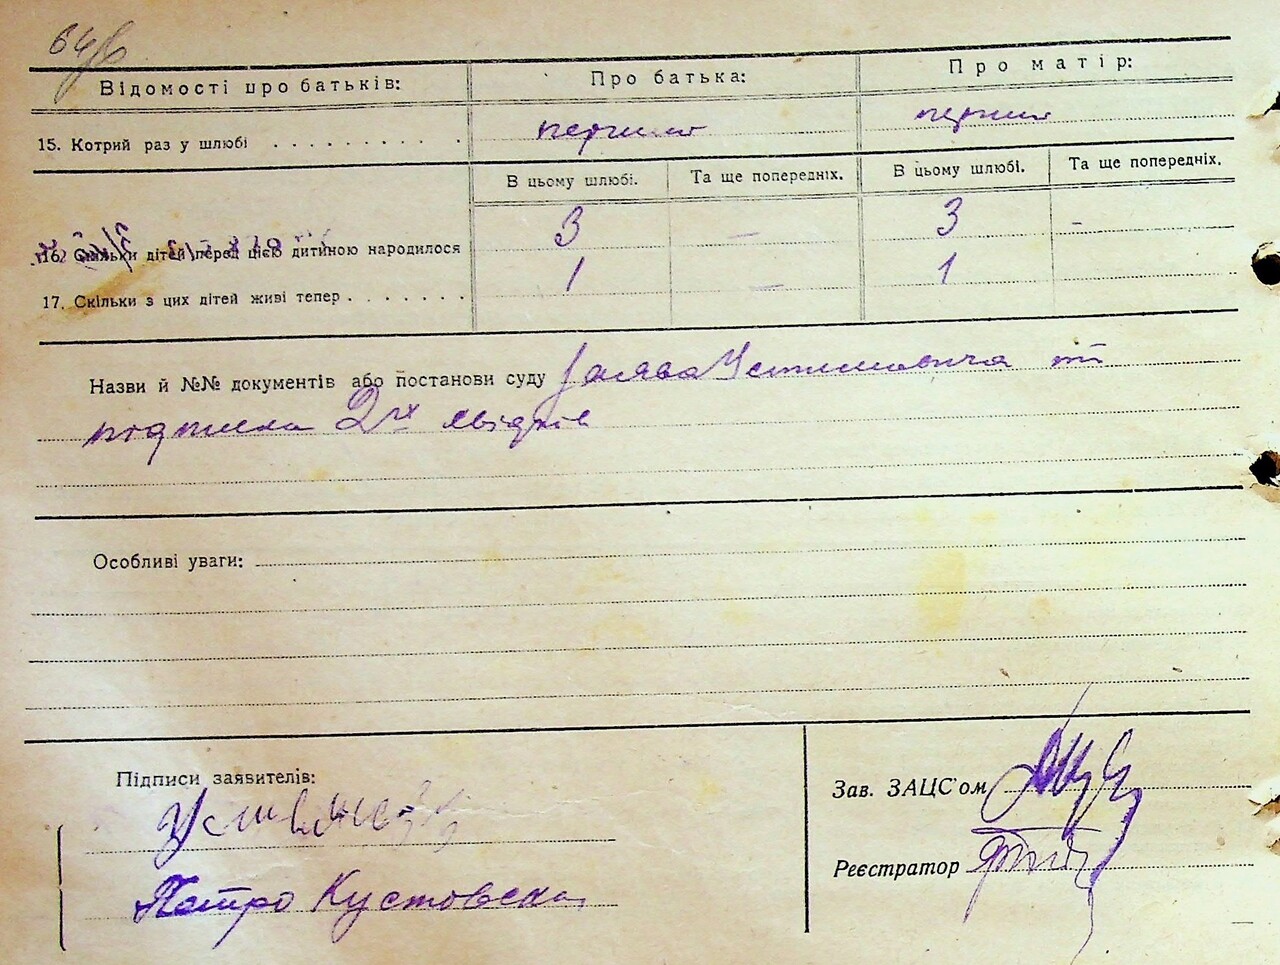 64/в
Відомості про батьків: Про батька: Про матір:
15. Котрий раз у шлюбі . . . . . . . . . . перший перший
В цьому шлюбі. Та ще попередніх. В цьому шлюбі. Та ще попередніх.
16. Скільки дітей перед цією дитиною народилося 3 — 3 -
17. Скільки з цих дітей живі тепер . . . . . . . 1 — 1
Назви й №№ документів або постанови суду Заява Устимовича та
підписка 2ох свідків
Особливі уваги:
Підписи заявителів:
Зав. ЗАЦС'ом
Петро Кустовська
Реєстратор